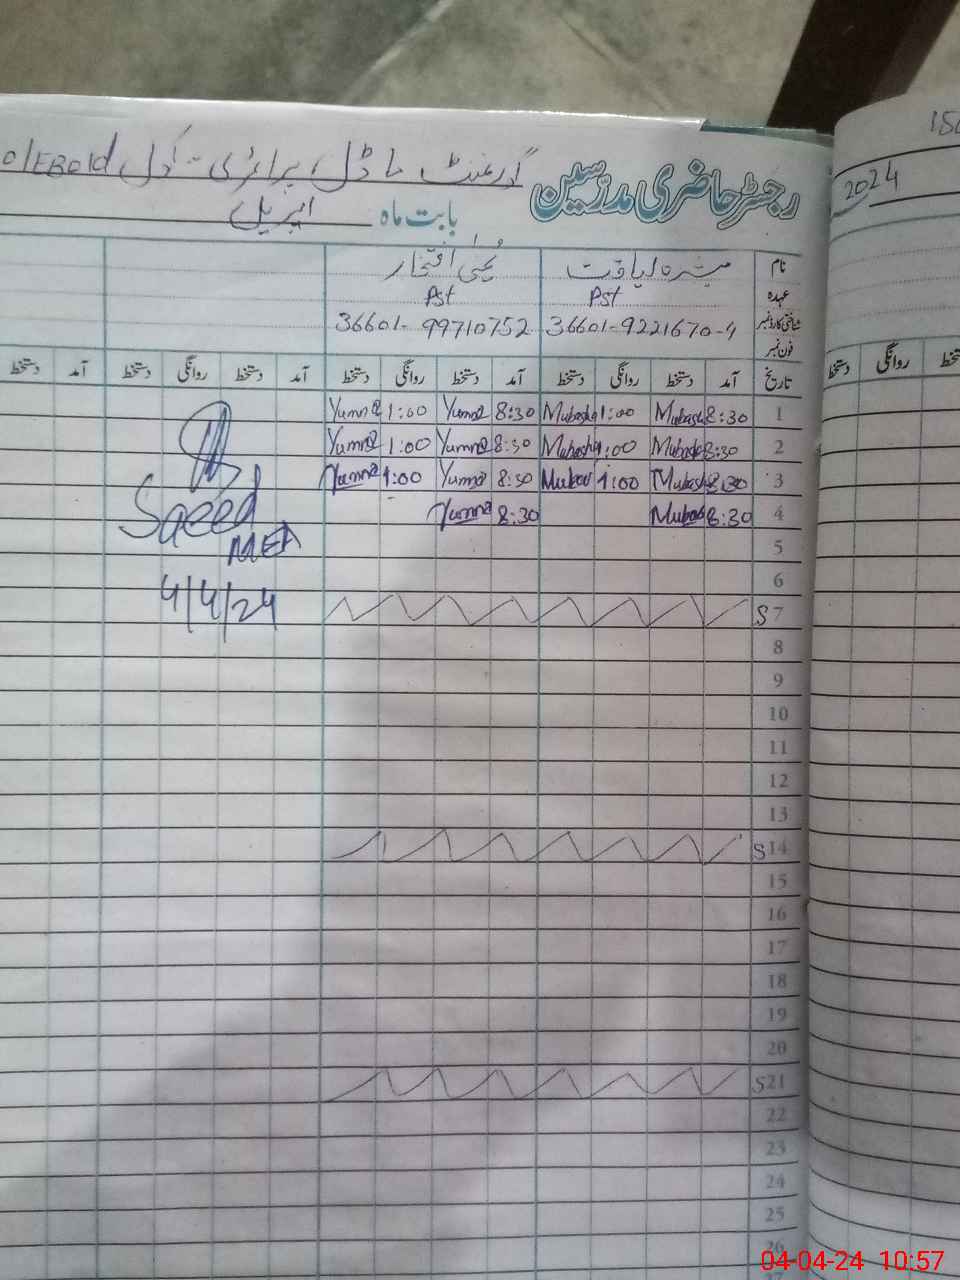 رجسٹر حاضری مدرّسین گورنمنٹ ماڈل پرائمری سکول
2024
بابت ماہ اپریل
نام مبشرہ لیاقت یمنیٰ افتخار
عہدہ Pst Pst
شناختی کارڈ نمبر 36601-9221670-4 36601-99710752
فون نمبر
تاریخ آمد دستخط روانگی دستخط آمد دستخط روانگی دستخط آمد دستخط روانگی دستخط آمد دستخط
روانگی
1 8:30 Mubash 1:00 Mubash 8:30 Yumna 1:00 Yumna
2 8:30 Mubash 1:00 Mubash 8:30 Yumna 1:00 Yumna
3 8:30 Mubash 1:00 Mubash 8:30 Yumna 1:00 Yumna
4 8:30 Mubash 8:30 Yumna
Saeed
MEA
4/4/24
5
6
S 7
8
9
10
11
12
13
S 14
15
16
17
18
19
20
S 21
22
23
24
25
26
04-04-24 10:57